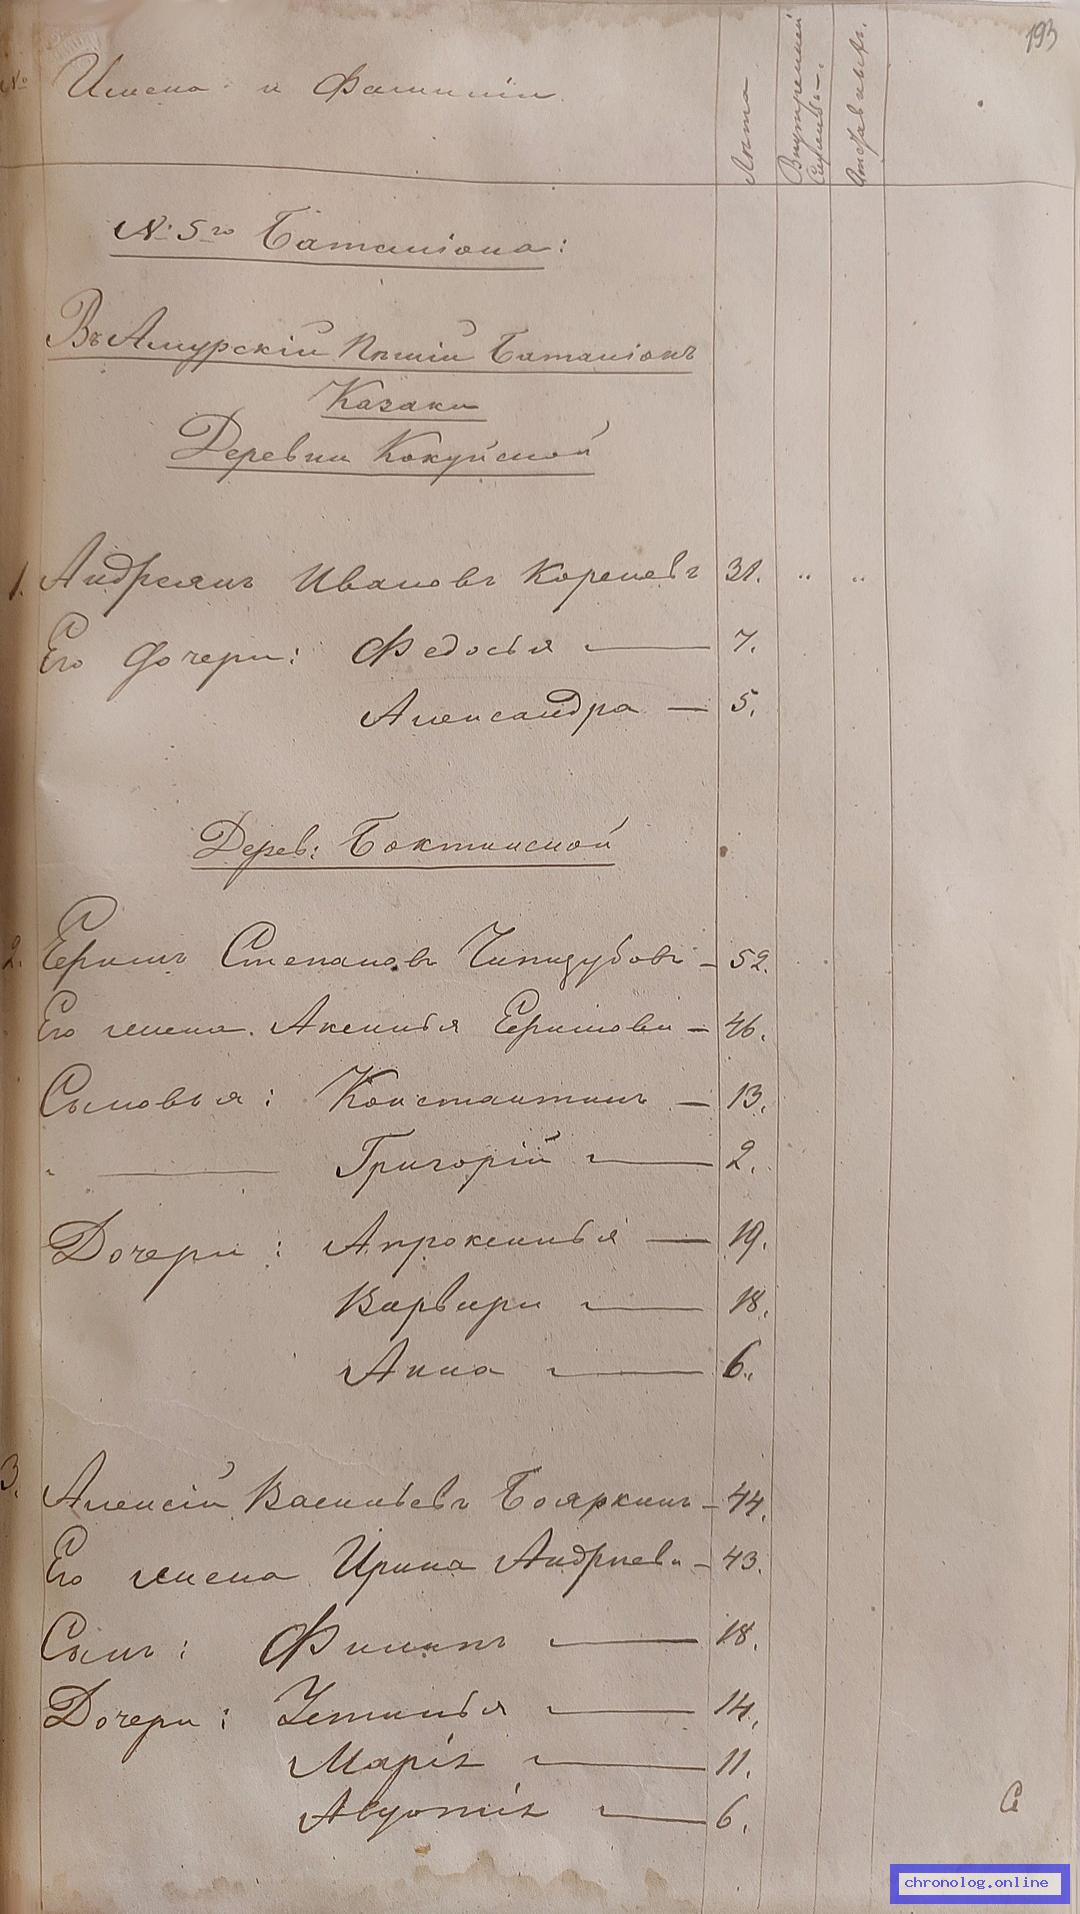 193
№ Имена и Фамиліи. Лѣта Внутренней Службы. Отставныхъ.
№ 5го Баталіона:
Въ Амурскій Пѣшій Баталіонъ
Казаки
Деревни Кокуйской
1. Андреянъ Ивановъ Кореневъ 31. " "
Его дочери: Федосья — 7.
Александра — 5.
Дерев: Боктинской
2. Ефимъ Степановъ Чипизубовъ — 52.
Его жена Аксинья Ефимова — 46.
Сыновья: Константинъ — 13.
" — Григорій — 2.
Дочери: Апроксинья — 19.
Варвара — 18.
Анна — 6.
3. Алексій Васильевъ Бояркинъ — 44.
Его жена Ирина Андреева — 43.
Сынъ: Филипъ — 18.
Дочери: Устинья — 14.
Марія — 11.
Авдотія — 6.
С
chronolog.online